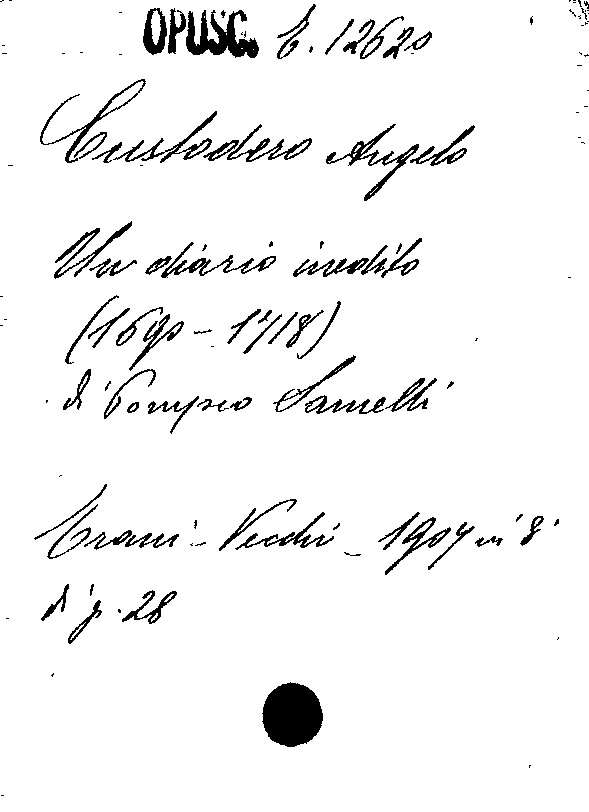 OPUSC. E. 12620
Custodero Angelo
Un diario inedito
(1690 - 1718)
di Pompeo Sarnelli
Trani - Vecchi - 1907 in 8°
di p. 28